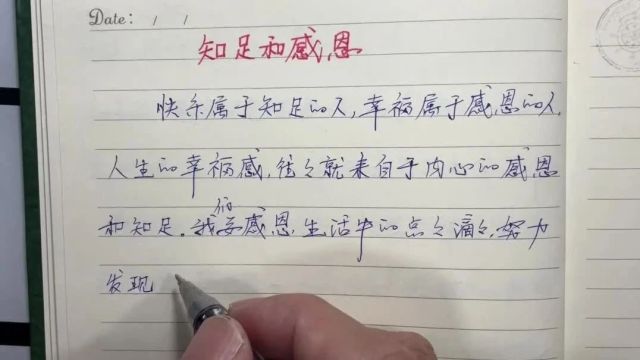 Date: / /
知足和感恩
快乐属于知足的人,幸福属于感恩的人,
人生的幸福感,往々就来自于内心的感恩
和知足。我们要感恩生活中的点々滴々,努力
发现